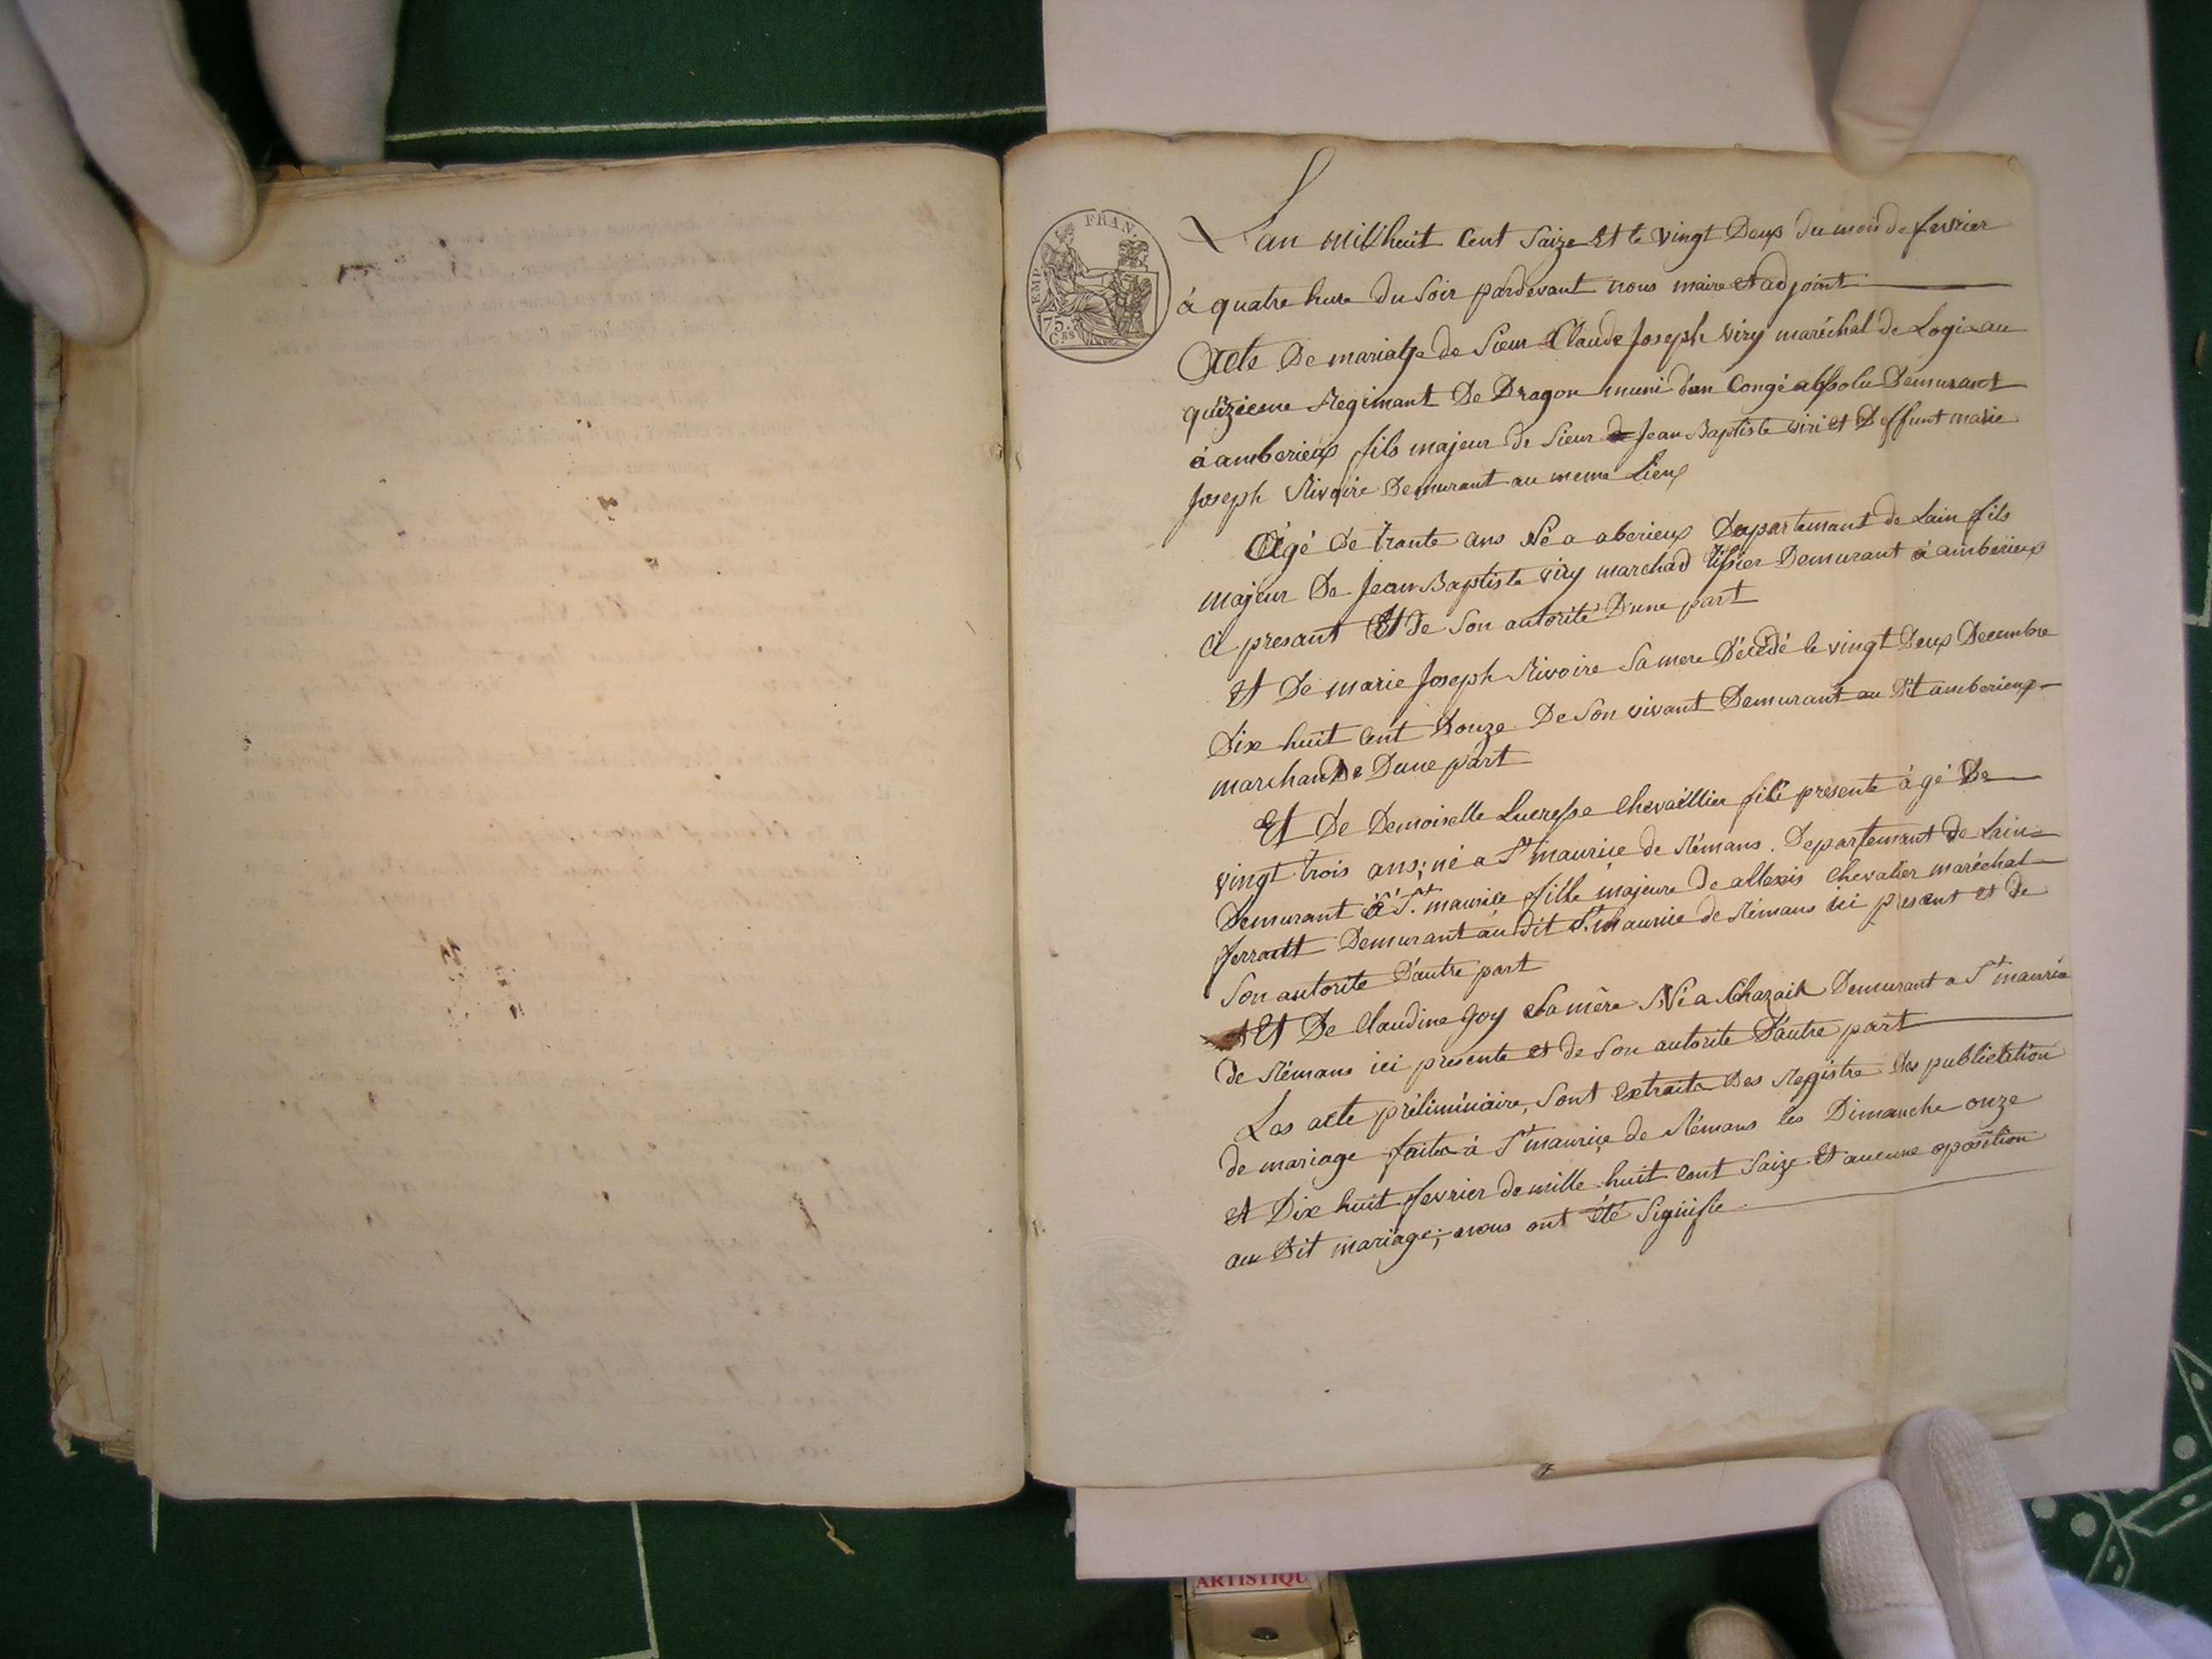 EMP. FRAN.
75.
C.es
L'an mil huit Cent Saize Et le vingt Deux du mois de fevrier
à quatre hure du Soir pardevant nous maire et adjoint
Acte De mariage de Sieur Claude Joseph viry maréchal de Logis au
quizieme Regimant De Dragon muni d'un Congé absolu Demurant
à amberieux fils majeur de Sieur de Jean Baptiste viri et Deffunt marie
Joseph Rivoire Demurant au meme Lieux
Agé de trante ans Né a aberieux Departemant de Lain fils
majeur De Jean Baptiste viry marchad tissier Demurant à amberieux
Ci presant Et De Son autorité D'une part
Et De marie Joseph Rivoire Sa mere Décédé le vingt Deux Decembre
Dix huit Cent Douze De Son vivant Demurant au Dt amberieux
marchande Dune part
Et De Demoiselle Lucresse Chevallier fille présente àgé De
vingt trois ans; né a St maurice de Rémans. Departemant de Lain
Demurant à St. maurice fille majeure de allexis Chevalier maréchal
ferrautt Demurant au dit St. maurice de Rémans ici present et de
Son autorité D'autre part
Et De Claudine Goy Sa mère Né a Chazait Demurant a St maurice
de Rémans ici présente et de Son autorité D'autre part
Les acte préliminaire, Sont Extraite Des Registre Des publication
de mariage faite à St maurice de Rémans les Dimanche onze
et Dix huit fevrier de mille huit Cent Saize Et aucune oposition
au Dit mariage; nous ont été Signifie
ARTISTIQU